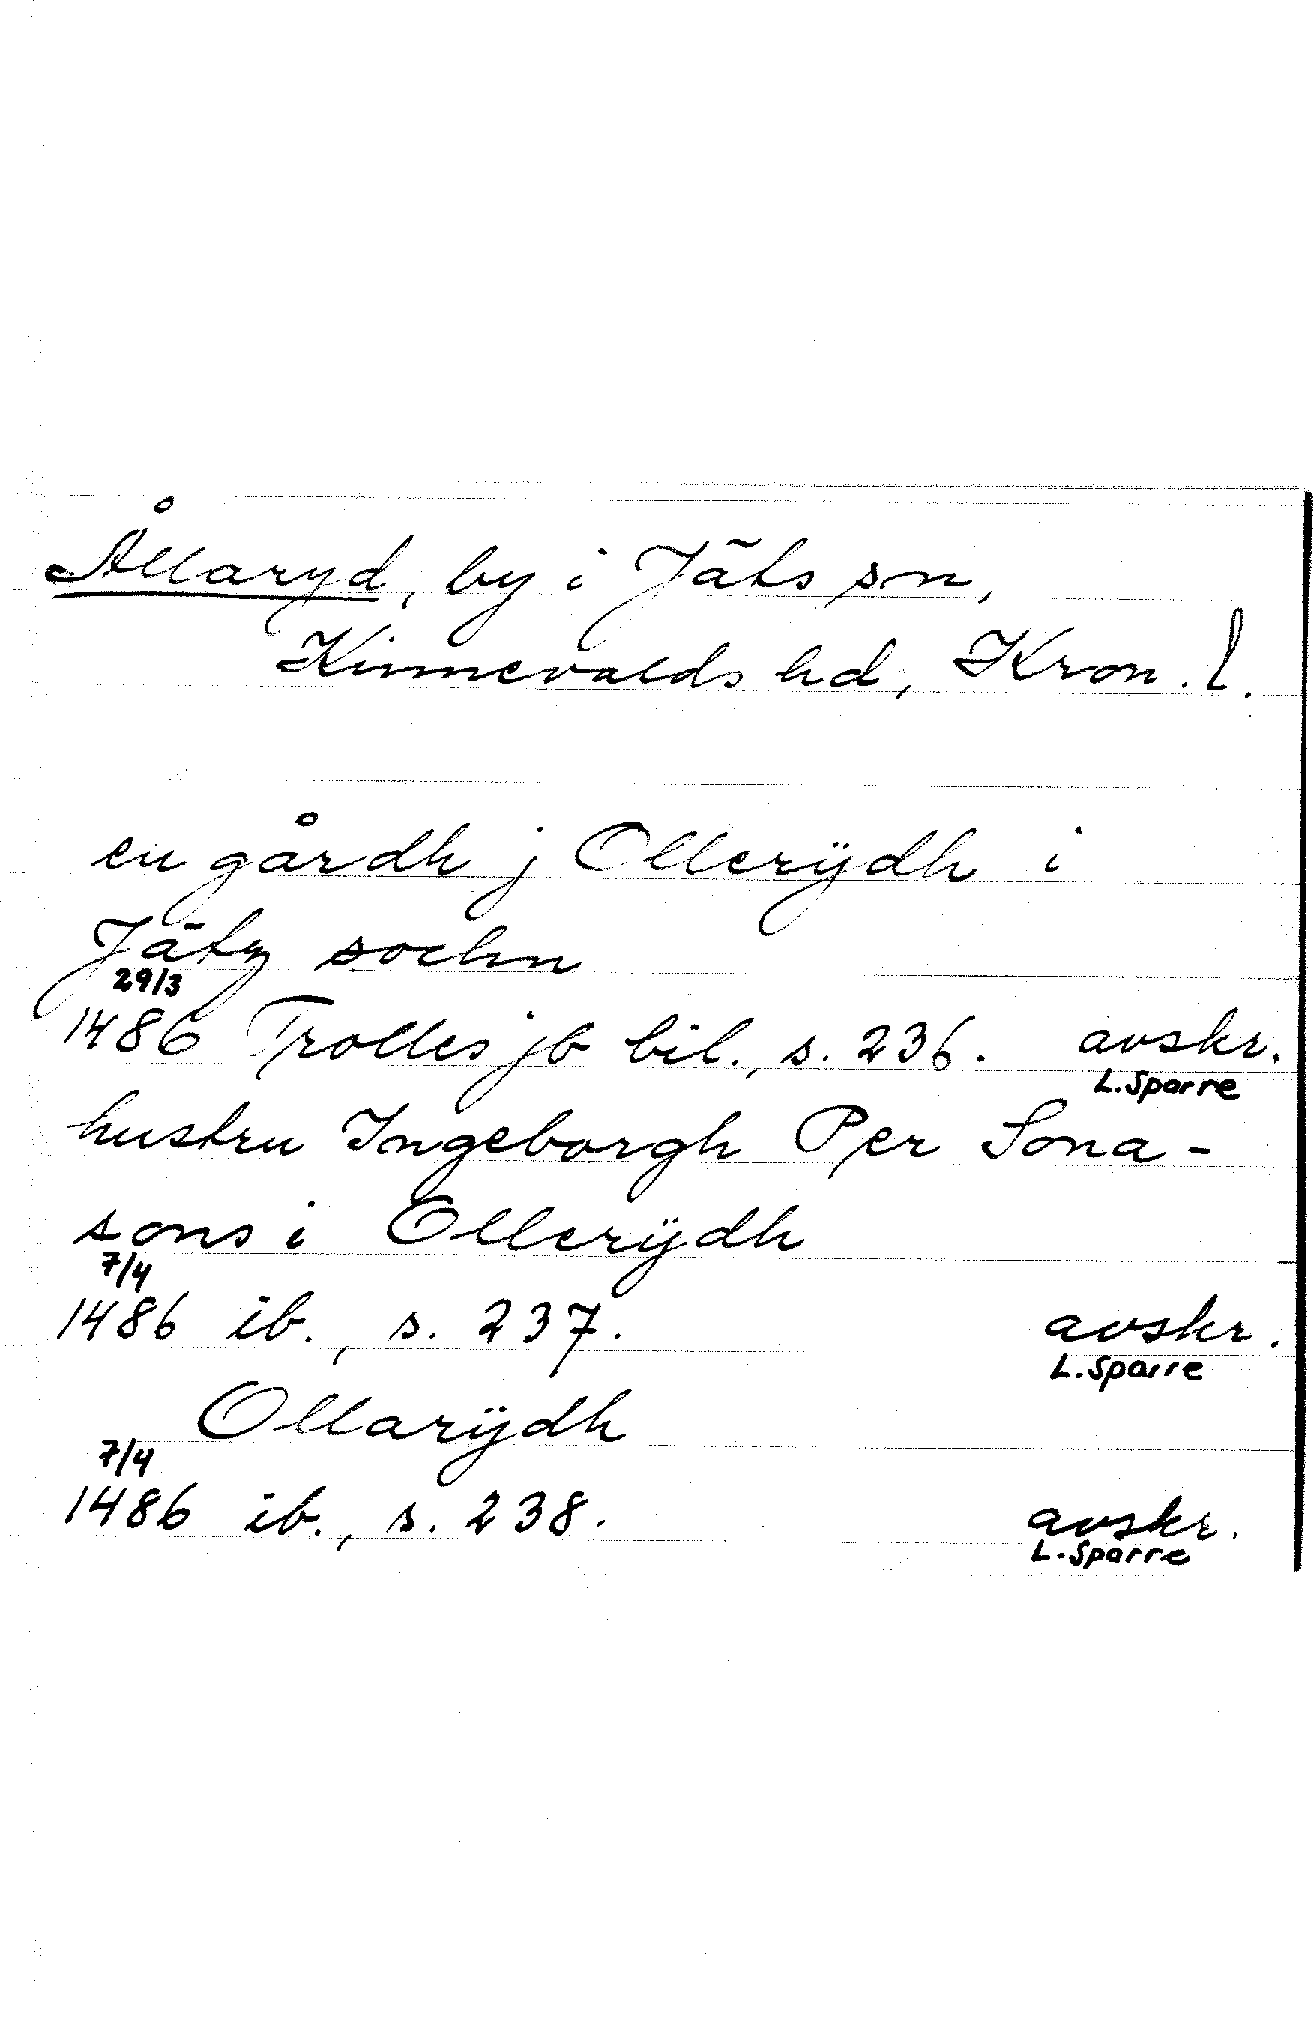 Ållaryd, by i Jäts sn,
Kinnevalds hd, Kron. l.
en gårdh j Ollerÿdh i
Jätz sochn
29/3
1486 Trolles jb bil., s. 236. avskr.
L. Sparre
hustru Ingeborgh Per Sona-
sons i Ollerÿdh
7/4
1486 ib., s. 237. avskr.
L. Sparre
Ollarÿdh
7/4
1486 ib., s. 238. avskr.
L. Sparre